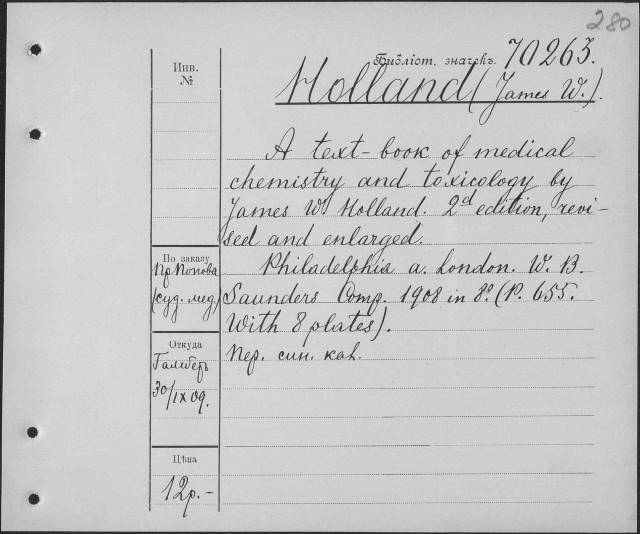 280
Библіот. значекъ. 70263.
Инв.
№
Holland (James W.).
A text-book of medical
chemistry and toxicology by
James W. Holland. 2d edition, revi-
sed and enlarged.
По заказу
Пр Попова
(суд. мед.)
Philadelphia a. London. W. B.
Saunders Comp. 1908 in 8º. (P. 655.
With 8 plates).
Откуда
30/IX 09.
Пер. син. кал.
Цѣна
12р.-